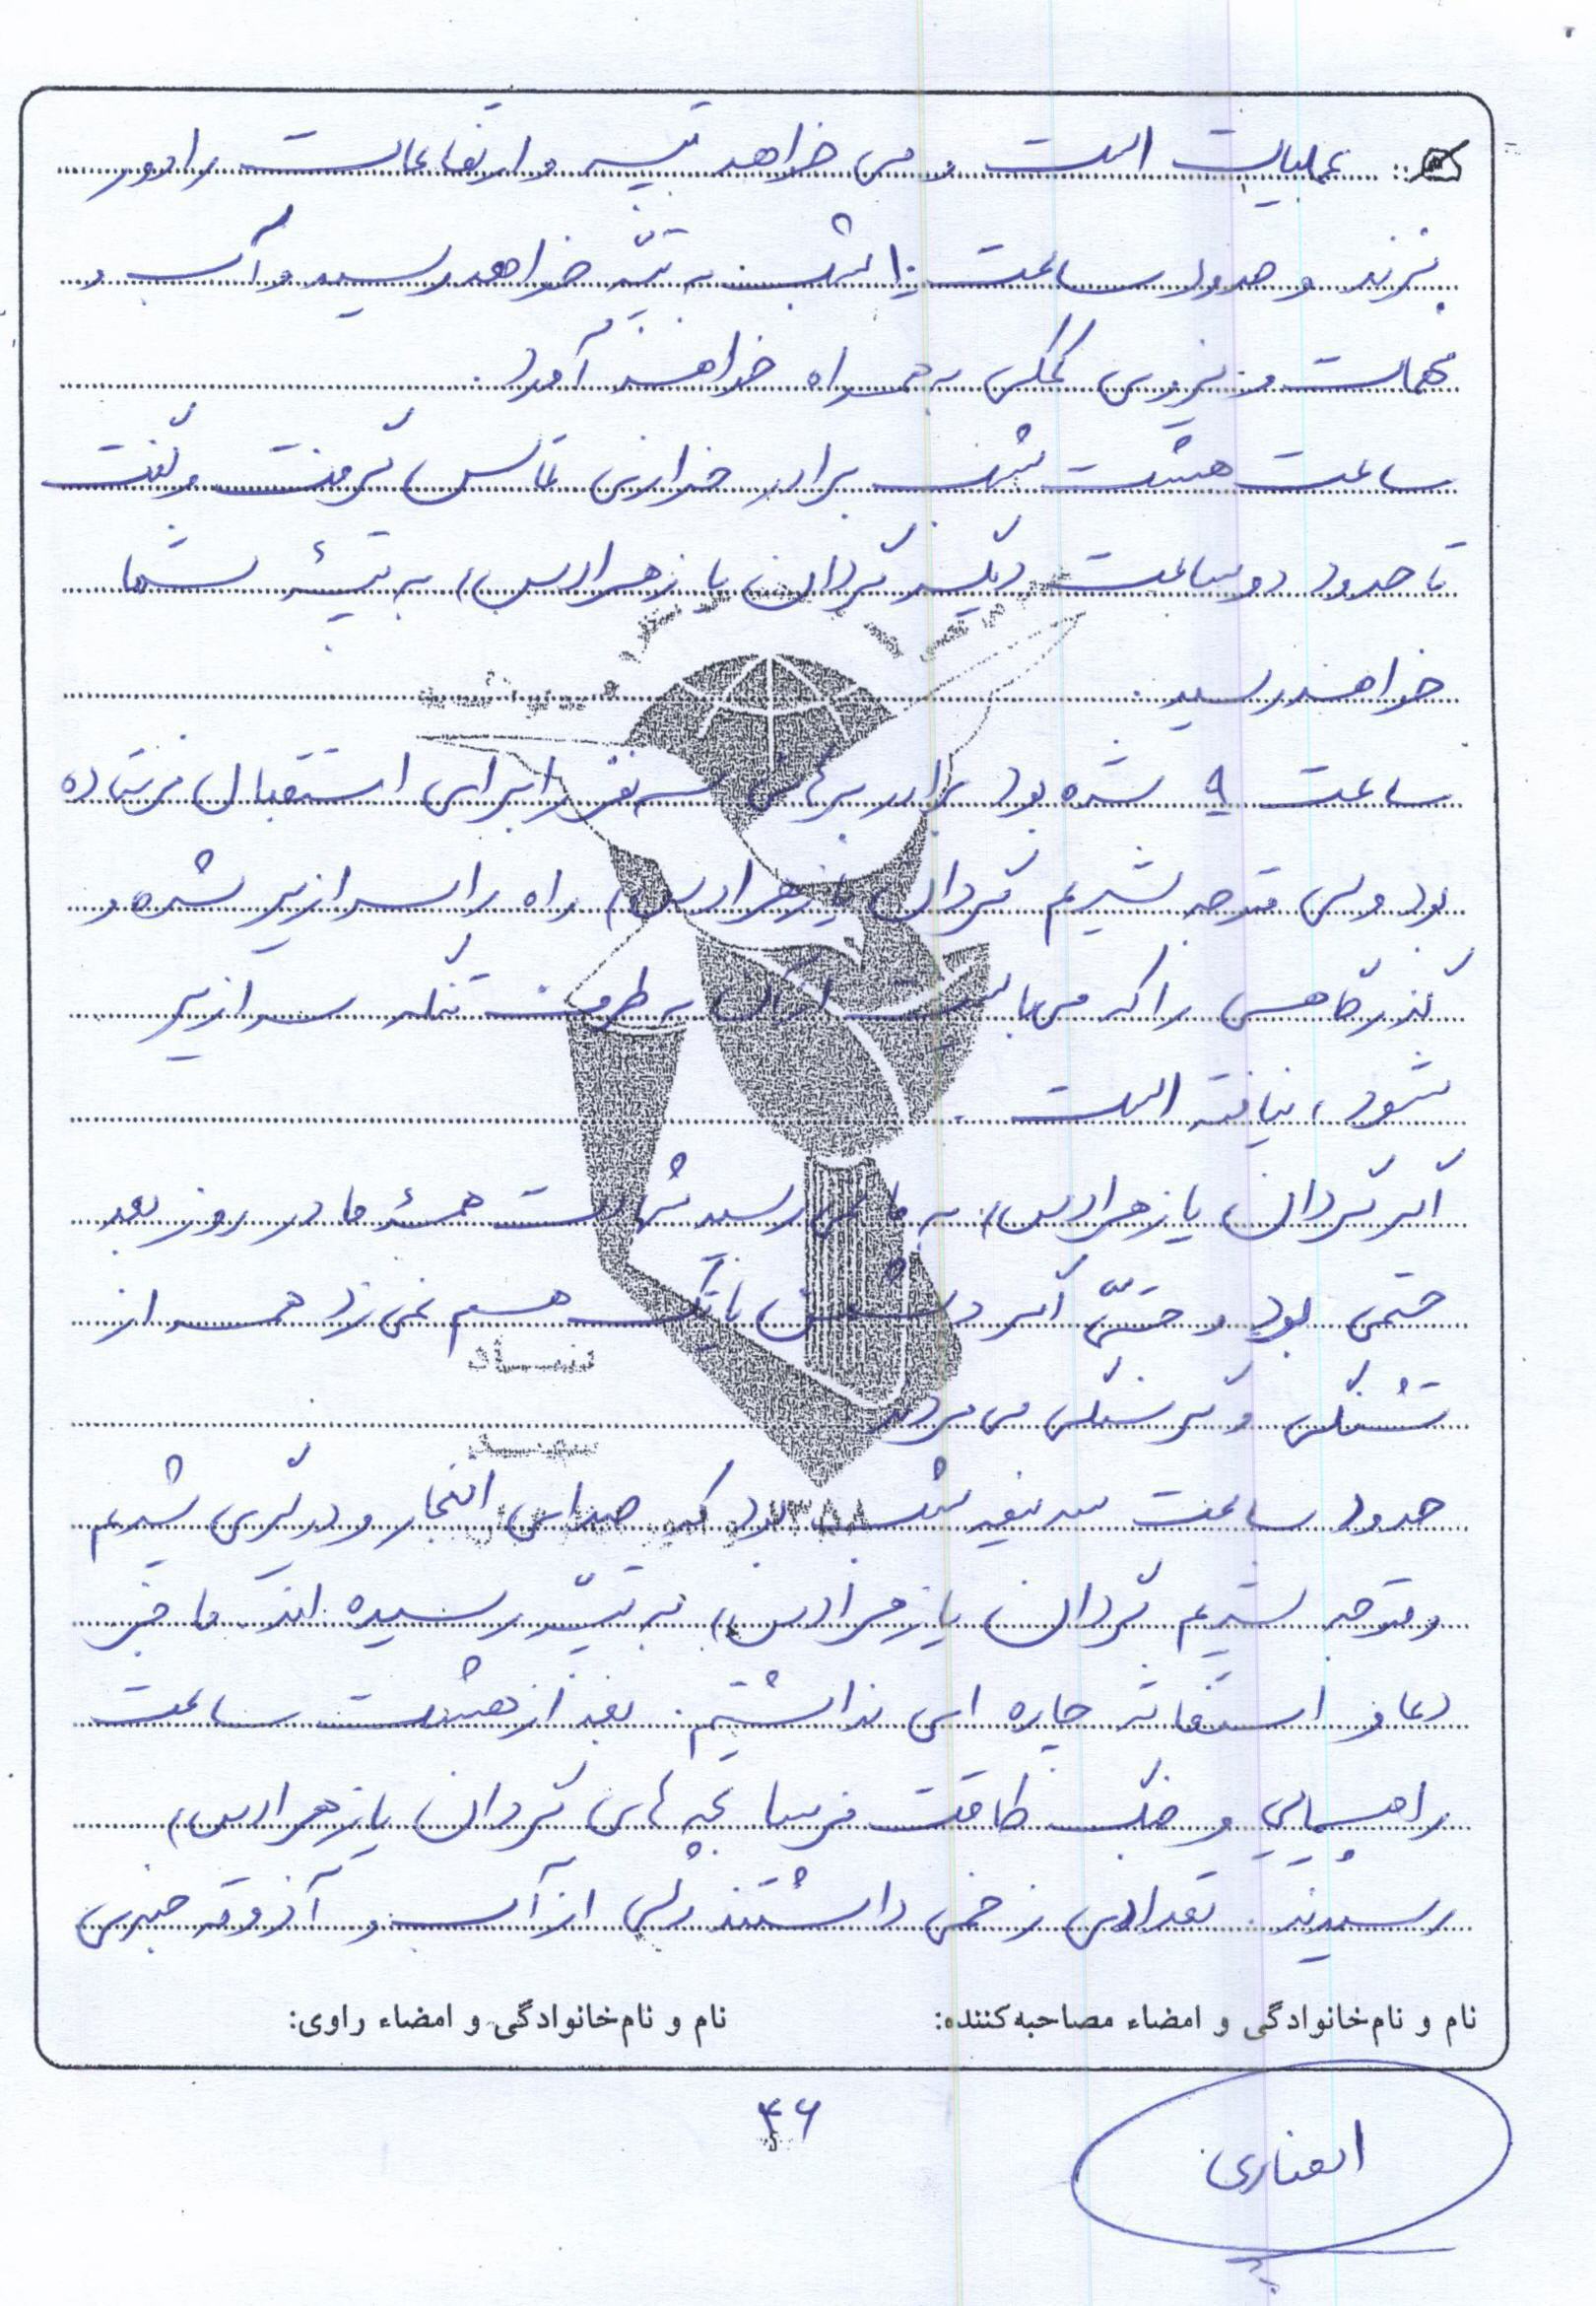 عملیات است و می خواهد تپه و ارتفاعات را دور
بزند و حدود ساعت ۱۰ شب به تپه خواهد رسید و آب و
مهمات و نیروی کمکی به همراه خواهند آورد.
ساعت هشت شب برادر خرازی تماس گرفت و گفت
تا حدود دو ساعت دیگر گردان یا زهرا(س) به تپهٔ شما
خواهند رسید.
ساعت ۹ شده بود برادر سه نفر را برای استقبال فرستاده
بود ولی متوجه شدیم گردان یا زهرا(س) راه را سرازیر شده و
گذرگاهی را که می بایست از آن به طرف تنگه سرازیر
شود، نیافته است.
اگر گردان یا زهرا(س) به ما نمی رسید شهادت همهٔ ما در روز بعد
حتمی بود و حتّی اگر دشمن پاتک هم نمی زد همه از
تشنگی و گرسنگی می مردند
حدود ساعت سه نیمه شب بود که صدای انفجار و درگیری شدیم
و متوجه شدیم گردان یا زهرا(س) به تپّه رسیده اند. ما جز
دعا و استغاثه چاره ای نداشتیم. بعد از هشت ساعت
راهپیمایی و جنگ طاقت فرسا بچه های گردان یا زهرا(س)
رسیدند. تعدادی زخمی داشتند ولی از آب و آذوقه خبری
نام و نام‌خانوادگی و امضاء مصاحبه‌کننده: نام و نام‌خانوادگی و امضاء راوی:
۴۶